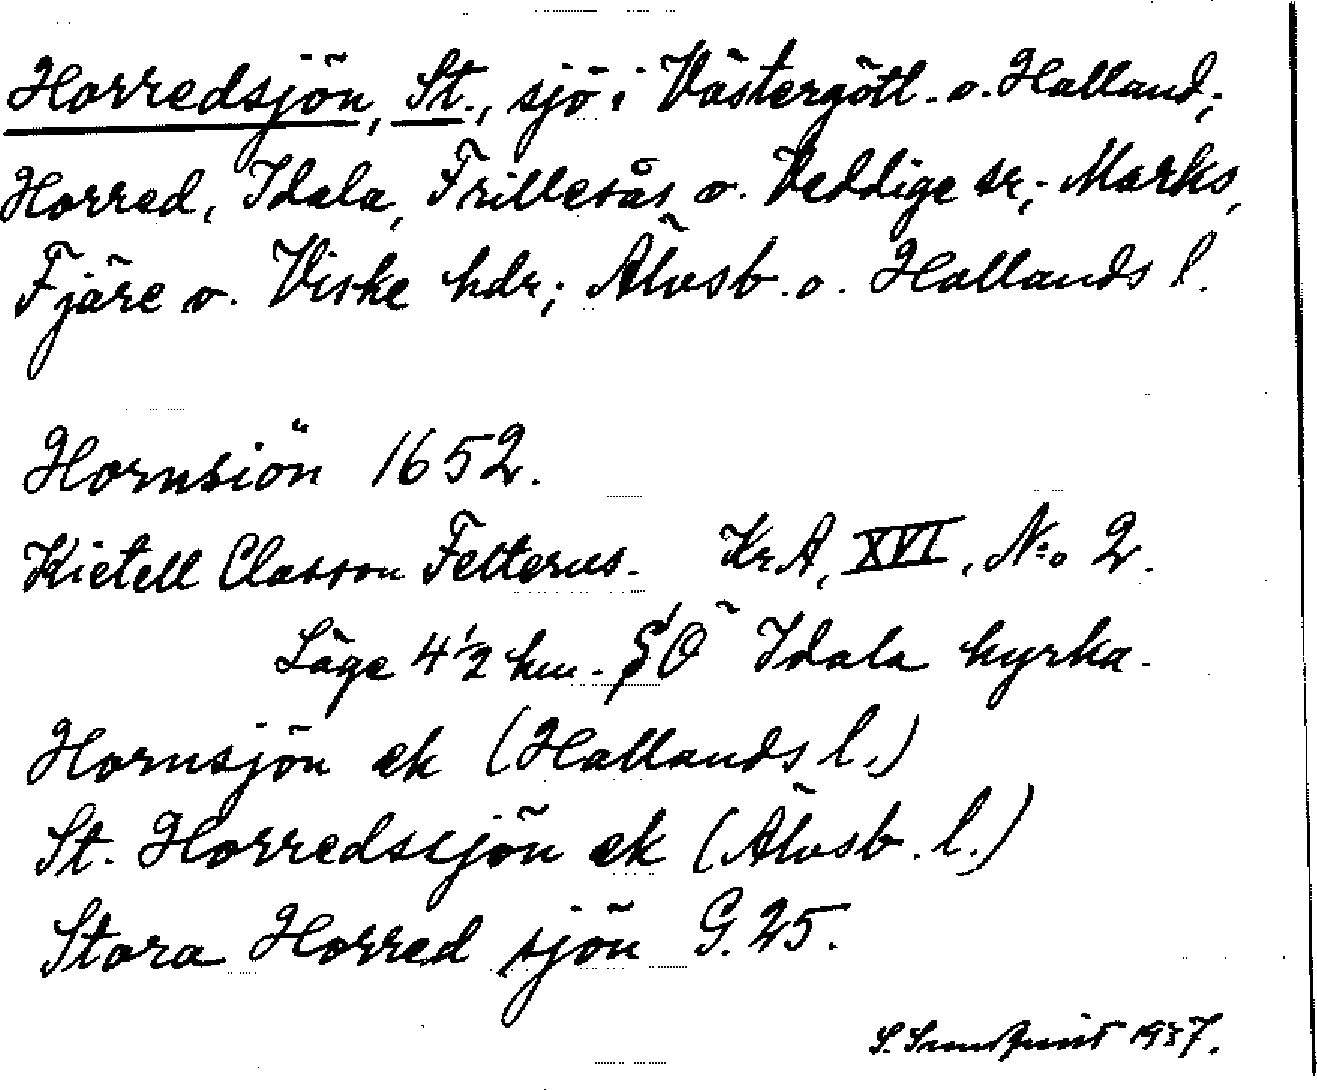 Horredsjön, St., sjö i Västergötl. o. Halland;
Horred, Idala, Frillesås o. Veddige sr; Marks,
Fjäre o. Viske hdr; Älvsb. o. Hallands l.
Hornsiön 1652.
Kietell Classon Felterus. KrA, XVI, N:o 2.
Läge 4 1/2 km. SÖ Idala kyrka.
Hornsjön ek (Hallands l.)
St. Horredssjön ek (Älvsb. l.)
Stora Horred sjön G. 25.
S. Sundquist 1937.